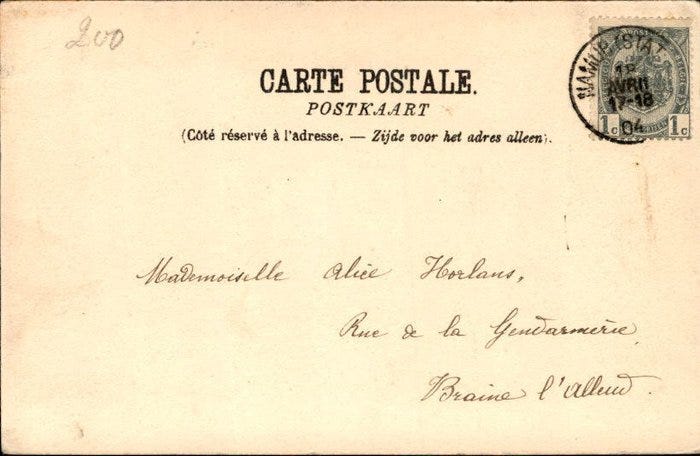 200
NAMUR (STAT
18
AVRIL
17-18
04
1c 1c
CARTE POSTALE.
POSTKAART
(Côté réservé à l'adresse. — Zijde voor het adres alleen).
Mademoiselle Alice Horlans,
Rue de la Gendarmerie
Braine l'Alleud.